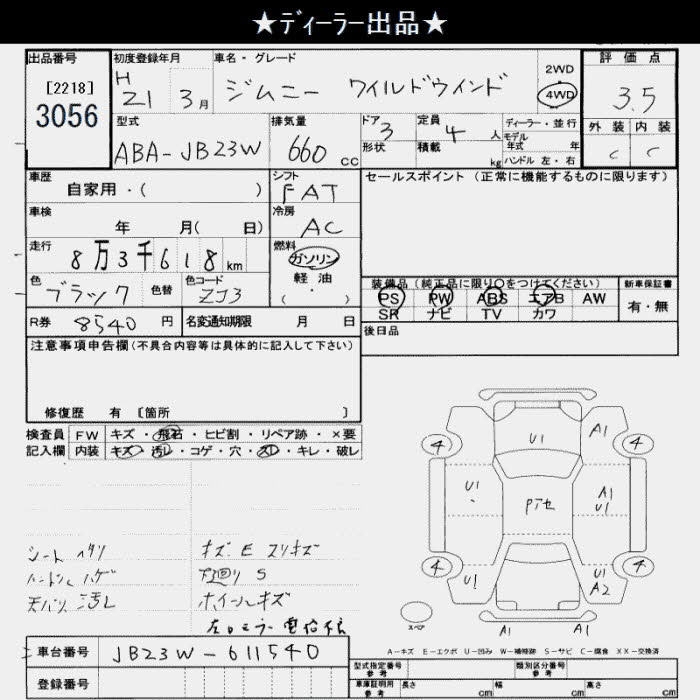 ★ディーラー出品★
出品番号
[2218]
3056
初度登録年月
H
21 3月
車名・グレード
ジムニー ワイルドウインド
2WD
4WD
評価点
3.5
型式
ABA-JB23W
排気量
660 cc
ドア 3
形状
定員 4 人
積載 kg
ディーラー・並行
モデル
年式 年
ハンドル 左・右
外装 内装
C C
車歴
自家用・( )
シフト
FAT
セールスポイント(正常に機能するものに限ります)
車検
年 月( 日)
冷房
AC
走行
8万3千618km
燃料
ガソリン
軽油
( ・ )
色
ブラック
色替
色コード
ZJ3
装備品(純正品に限り○をつけてください)
PS PW ABS エアB AW
SR ナビ TV カワ
新車保証書
有・無
R券 8540 円
名変通知期限 月 日
後日品
注意事項申告欄(不具合内容等は具体的に記入して下さい)
修復歴 有 [箇所 ]
検査員
記入欄
FW キズ・飛石・ヒビ割・リペア跡・×要
内装 キズ・汚レ・コゲ・穴・スレ・キレ・破レ
シート ヘタリ
ハンドル ハゲ
天バリ 汚レ
キズ E スリキズ
下回り S
ホイールキズ
4 U1 A1 4
U1 Pアセ A1
U1
4 4
U1 U1
A2
スペア
A1 A1
A-キズ E-エクボ U-凹み W-補修跡 S-サビ C-腐食 XX-交換済
車台番号 JB23W-611540
登録番号
型式指定番号
参考
類別区分番号
参考
車庫証明用
参考
長さ cm 幅 cm 高さ cm